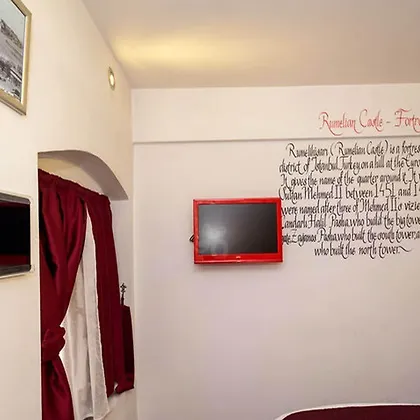 Rumelian Castle - Fortre
Rumelihisarı (Rumelian Castle) is a fortres
district of Istanbul, Turkey, on a hill at the Euro
gives the name of the quarter around it. It
Sultan Mehmed II between 1451 and 1
were named after three of Mehmed II's vizie
Candarlı Halil Pasha, who build the big tower
Zaganos Pasha, who built the south tower, a
who built the north tower.